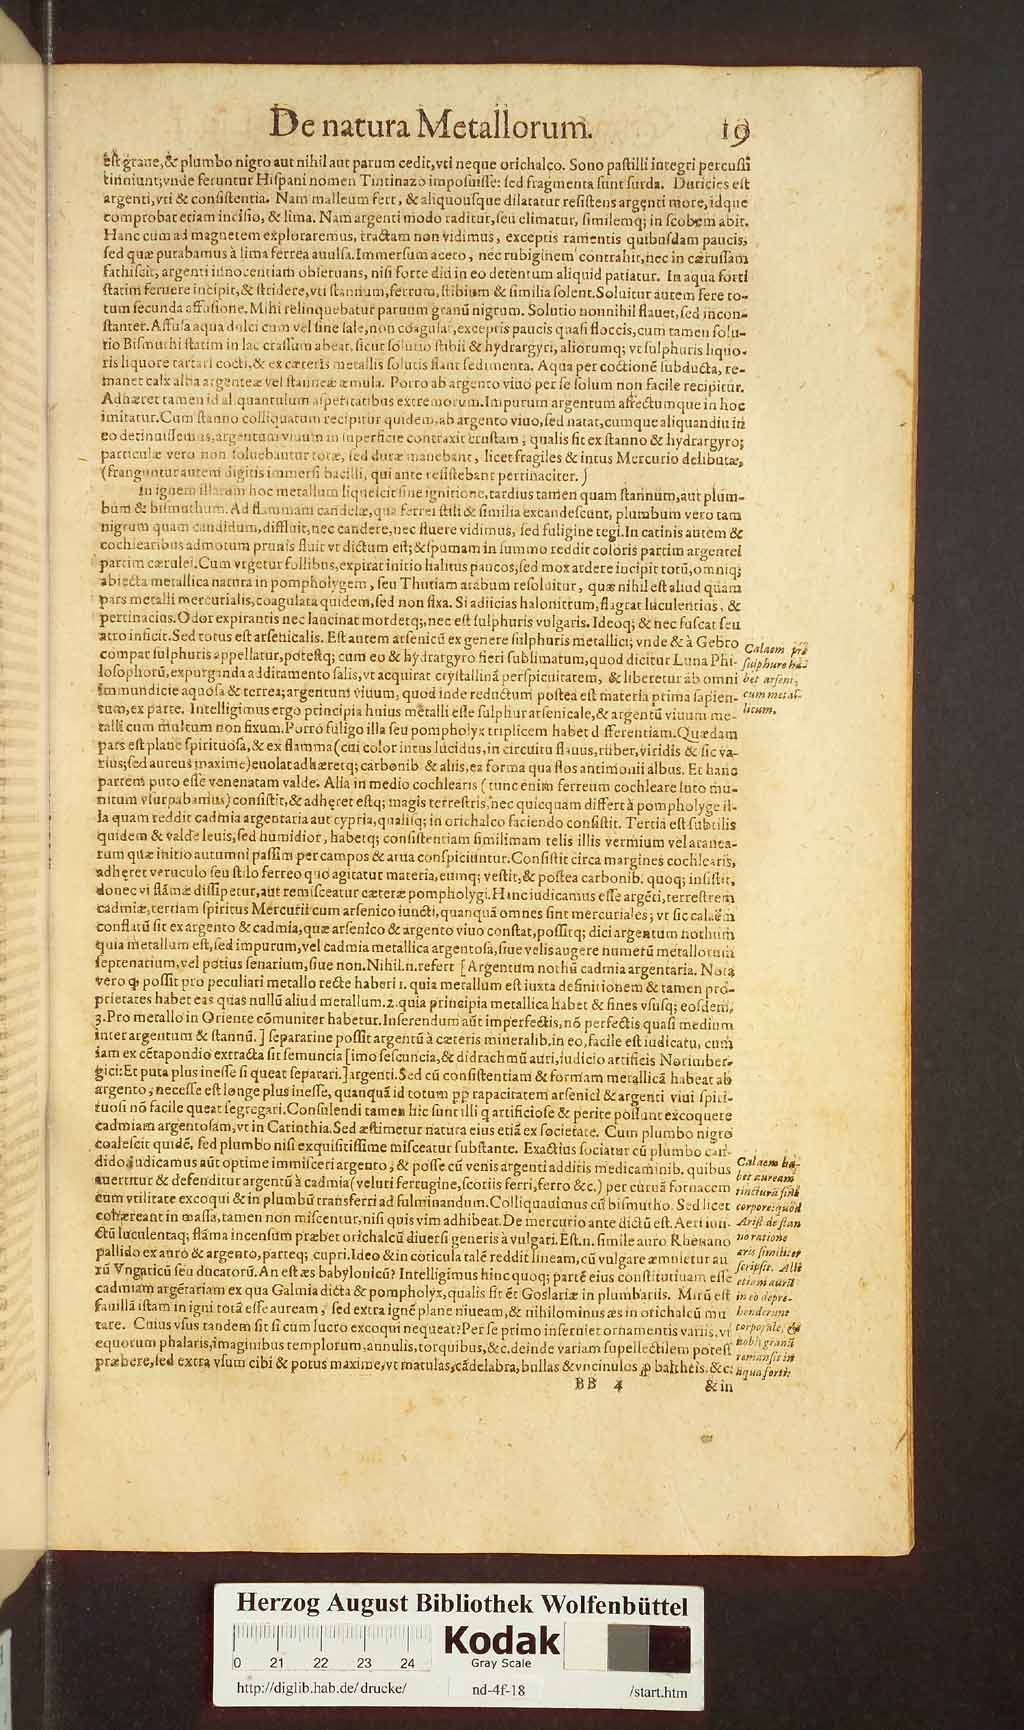 De natura Metallorum. 19
est graue, & plumbo nigro aut nihil aut parum cedit, vti neque orichalco. Sono pastilli integri percussi
tinniunt; vnde feruntur Hispani nomen Tintinazo imposuisse: sed fragmenta sunt surda. Duricies est
argenti, vti & consistentia. Nam malleum fert, & aliquousque dilatatur resistens argenti more, idque
comprobat etiam incisio, & lima. Nam argenti modo raditur, seu elimatur, similemq; in scobem abit.
Hanc cum ad magnetem exploraremus, tractam non vidimus, exceptis ramentis quibusdam paucis,
sed quæ putabamus à lima ferrea auulsa. Immersum aceto, nec rubiginem contrahit, nec in cærussam
fathiscit, argenti innocentiam obseruans, nisi forte diu in eo detentum aliquid patiatur. In aqua forti
statim feruere incipit, & stridere, vti stannum, ferrum, stibium & similia solent. Soluitur autem fere to-
tum secunda affusione. Mihi relinquebatur paruum granū nigrum. Solutio nonnihil flauet, sed incon-
stanter. Affusa aqua dulci cum vel sine sale, non coagulat, exceptis paucis quasi floccis, cum tamen solu-
tio Bismuthi statim in lac crassum abeat, sicut solutio stibii & hydrargyri, aliorumq; vt sulphuris liquo-
ris liquore tartari cocti, & ex cæteris metallis solutis fiant sedimenta. Aqua per coctionē subducta, re-
manet calx alba argenteæ vel stanneæ æmula. Porro ab argento viuo per se solum non facile recipitur.
Adhæret tamen id al quantulum asperitatibus extremorum. Impurum argentum affectumque in hoc
imitatur. Cum stanno colliquatum recipitur quidem, ab argento viuo, sed natat, cumque aliquandiu in
eo detinuissemus, argentum viuum in superficie contraxit crustam, qualis fit ex stanno & hydrargyro;
particulæ vero non soluebantur totæ, sed duræ manebant, licet fragiles & intus Mercurio delibutæ,
(franguntur autem digitis immersi bacilli, qui ante resistebant pertinaciter.)
In ignem illatum hoc metallum liquescit sine ignitione, tardius tamen quam stannum, aut plum-
bum & bismuthum. Ad flammam candelæ, qua ferrei stili & similia excandescunt, plumbum vero tam
nigrum quam candidum, diffluit, nec candere, nec fluere vidimus, sed fuligine tegi. In catinis autem &
cochlearibus admotum prunis fluit vt dictum est; & spumam in summo reddit coloris partim argentei
partim cærulei. Cum vrgetur follibus, expirat initio halitus paucos, sed mox ardere incipit totū, omniq;
abiecta metallica natura in pompholygem, seu Thutiam arabum resoluitur, quæ nihil est aliud quam
pars metalli mercurialis, coagulata quidem, sed non fixa. Si adiicias halonitrum, flagrat luculentius, &
pertinacius. Odor expirantis nec lancinat mordetq;, nec est sulphuris vulgaris. Ideoq; & nec fuscat seu
atro inficit. Sed totus est arsenicalis. Est autem arsenicū ex genere sulphuris metallici; vnde & à Gebro
compar sulphuris appellatur, potestq; cum eo & hydrargyro fieri sublimatum, quod dicitur Luna Phi-
losophorū, expurganda additamento salis, vt acquirat crystallinā perspicuitatem, & liberetur ab omni
immundicie aquosa & terrea; argentum viuum, quod inde reductum postea est materia prima sapien-
tum, ex parte. Intelligimus ergo principia huius metalli esse sulphur arsenicale, & argentū viuum me-
talli cum multum non fixum. Porro fuligo illa seu pompholyx triplicem habet d fferentiam. Quædam
pars est plane spirituosa, & ex flamma (cui color intus lucidus, in circuitu flauus, ruber, viridis & sic va-
rius; sed aureus maxime) euolat adhæretq; carbonib & aliis, ea forma qua flos antimonii albus. Et hanc
partem puto esse venenatam valde. Alia in medio cochlearis (tunc enim ferreum cochleare luto mu-
nitum vsurpabamus) consistit, & adhęret estq; magis terrestris, nec quicquam differt à pompholyge il-
la quam reddit cadmia argentaria aut cypria, qualisq; in orichalco faciendo consistit. Tertia est subtilis
quidem & valde leuis, sed humidior, habetq; consistentiam simillimam telis illis vermium vel aranea-
rum quæ initio autumni passim per campos & arua conspiciuntur. Consistit circa margines cochlearis,
adhęret veruculo seu stilo ferreo quo agitatur materia, eumq; vestit, & postea carbonib. quoq; insistit,
donec vi flāmæ dissipetur, aut remisceatur cæteræ pompholygi. Hinc iudicamus esse argēti, terrestrem
cadmiæ, tertiam spiritus Mercurii cum arsenico iuncti, quanquā omnes sint mercuriales; vt sic calaem
conflatū sit ex argento & cadmia, quæ arsenico & argento viuo constat, possitq; dici argentum nothum
quia metallum est, sed impurum, vel cadmia metallica argentosa, siue velis augere numerū metallorum
septenarium, vel potius senarium, siue non. Nihil. n. refert [Argentum nothū cadmia argentaria. Nota
vero q; possit pro peculiari metallo recte haberi 1. quia metallum est iuxta definitionem & tamen pro-
prietates habet eas quas nullū aliud metallum. 2. quia principia metallica habet & fines vsusq; eosdem,
3. Pro metallo in Oriente cōmuniter habetur. Inserendum aūt imperfectis, nō perfectis quasi medium
inter argentum & stannū.] separatine possit argentū à cæteris mineralib. in eo, facile est iudicatu, cum
iam ex cētapondio extracta sit semuncia [imo sescuncia, & didrachmū auri, iudicio artificis Norimber-
gici: Et puta plus inesse si queat separari.] argenti. Sed cū consistentiam & formam metallicā habeat ab
argento, necesse est longe plus inesse, quanquā id totum pp rapacitatem arsenici & argenti viui spiri-
tuosi nō facile queat segregari. Consulendi tamen hic sunt illi q artificiose & perite possunt excoquere
cadmiam argentosam, vt in Carinthia. Sed æstimetur natura eius etiā ex societate. Cum plumbo nigro
coalescit quidē, sed plumbo nisi exquisitissime misceatur substante. Exactius sociatur cū plumbo can-
dido, iudicamus aūt optime immisceri argento, & posse cū venis argenti additis medicaminib. quibus
auertitur & defenditur argentū à cadmia (veluti ferrugine, scoriis ferri, ferro &c.) per curuā fornacem
cum vtilitate excoqui & in plumbū transferri ad fulminandum. Colliquauimus cū bismutho. Sed licet
cohæreant in massa, tamen non miscentur, nisi quis vim adhibeat. De mercurio ante dictū est. Aeri iun-
ctū luculentaq; flāma incensum præbet orichalcū diuersi generis à vulgari. Est. n. simile auro Rhenano
pallido ex auro & argento, parteq; cupri. Ideo & in coricula talē reddit lineam, cū vulgare æmuletur au
rū Vngaricū seu ducatorū. An est æs babylonicū? Intelligimus hinc quoq; partē eius constitutiuam esse
cadmiam argētariam ex qua Galmia dicta & pompholyx, qualis fit ēt Goslariæ in plumbariis. Mirū est
fauillā istam in igni totā esse auream, sed extra ignē plane niueam, & nihilominus æs in orichalcū mu
tare. Cuius vsus tandem sit si cum lucro excoqui nequeat? Per se primo inseruiet ornamentis variis, vt
equorum phalaris, imaginibus templorum, annulis, torquibus, &c. deinde variam supellectilem potest
præbere, sed extra vsum cibi & potus maxime, vt matulas, cādelabra, bullas & vncinulos p baltheis. &c.
BB 4 & in
Calaem pro
sulphure ha-
bet arseni-
cum metal-
licum.
Calaem ha-
bet auream
tincturā sine
corpore: quod
Arist de stan
no ratione
æris similiter
scripsit. Alii
etiam aurū
in eo depre-
henderunt
corporale, &
nobis granū
remansit in
aqua forti.
Herzog August Bibliothek Wolfenbüttel
Kodak
Gray Scale
0 21 22 23 24
http://diglib.hab.de/drucke/ nd-4f-18 /start.htm